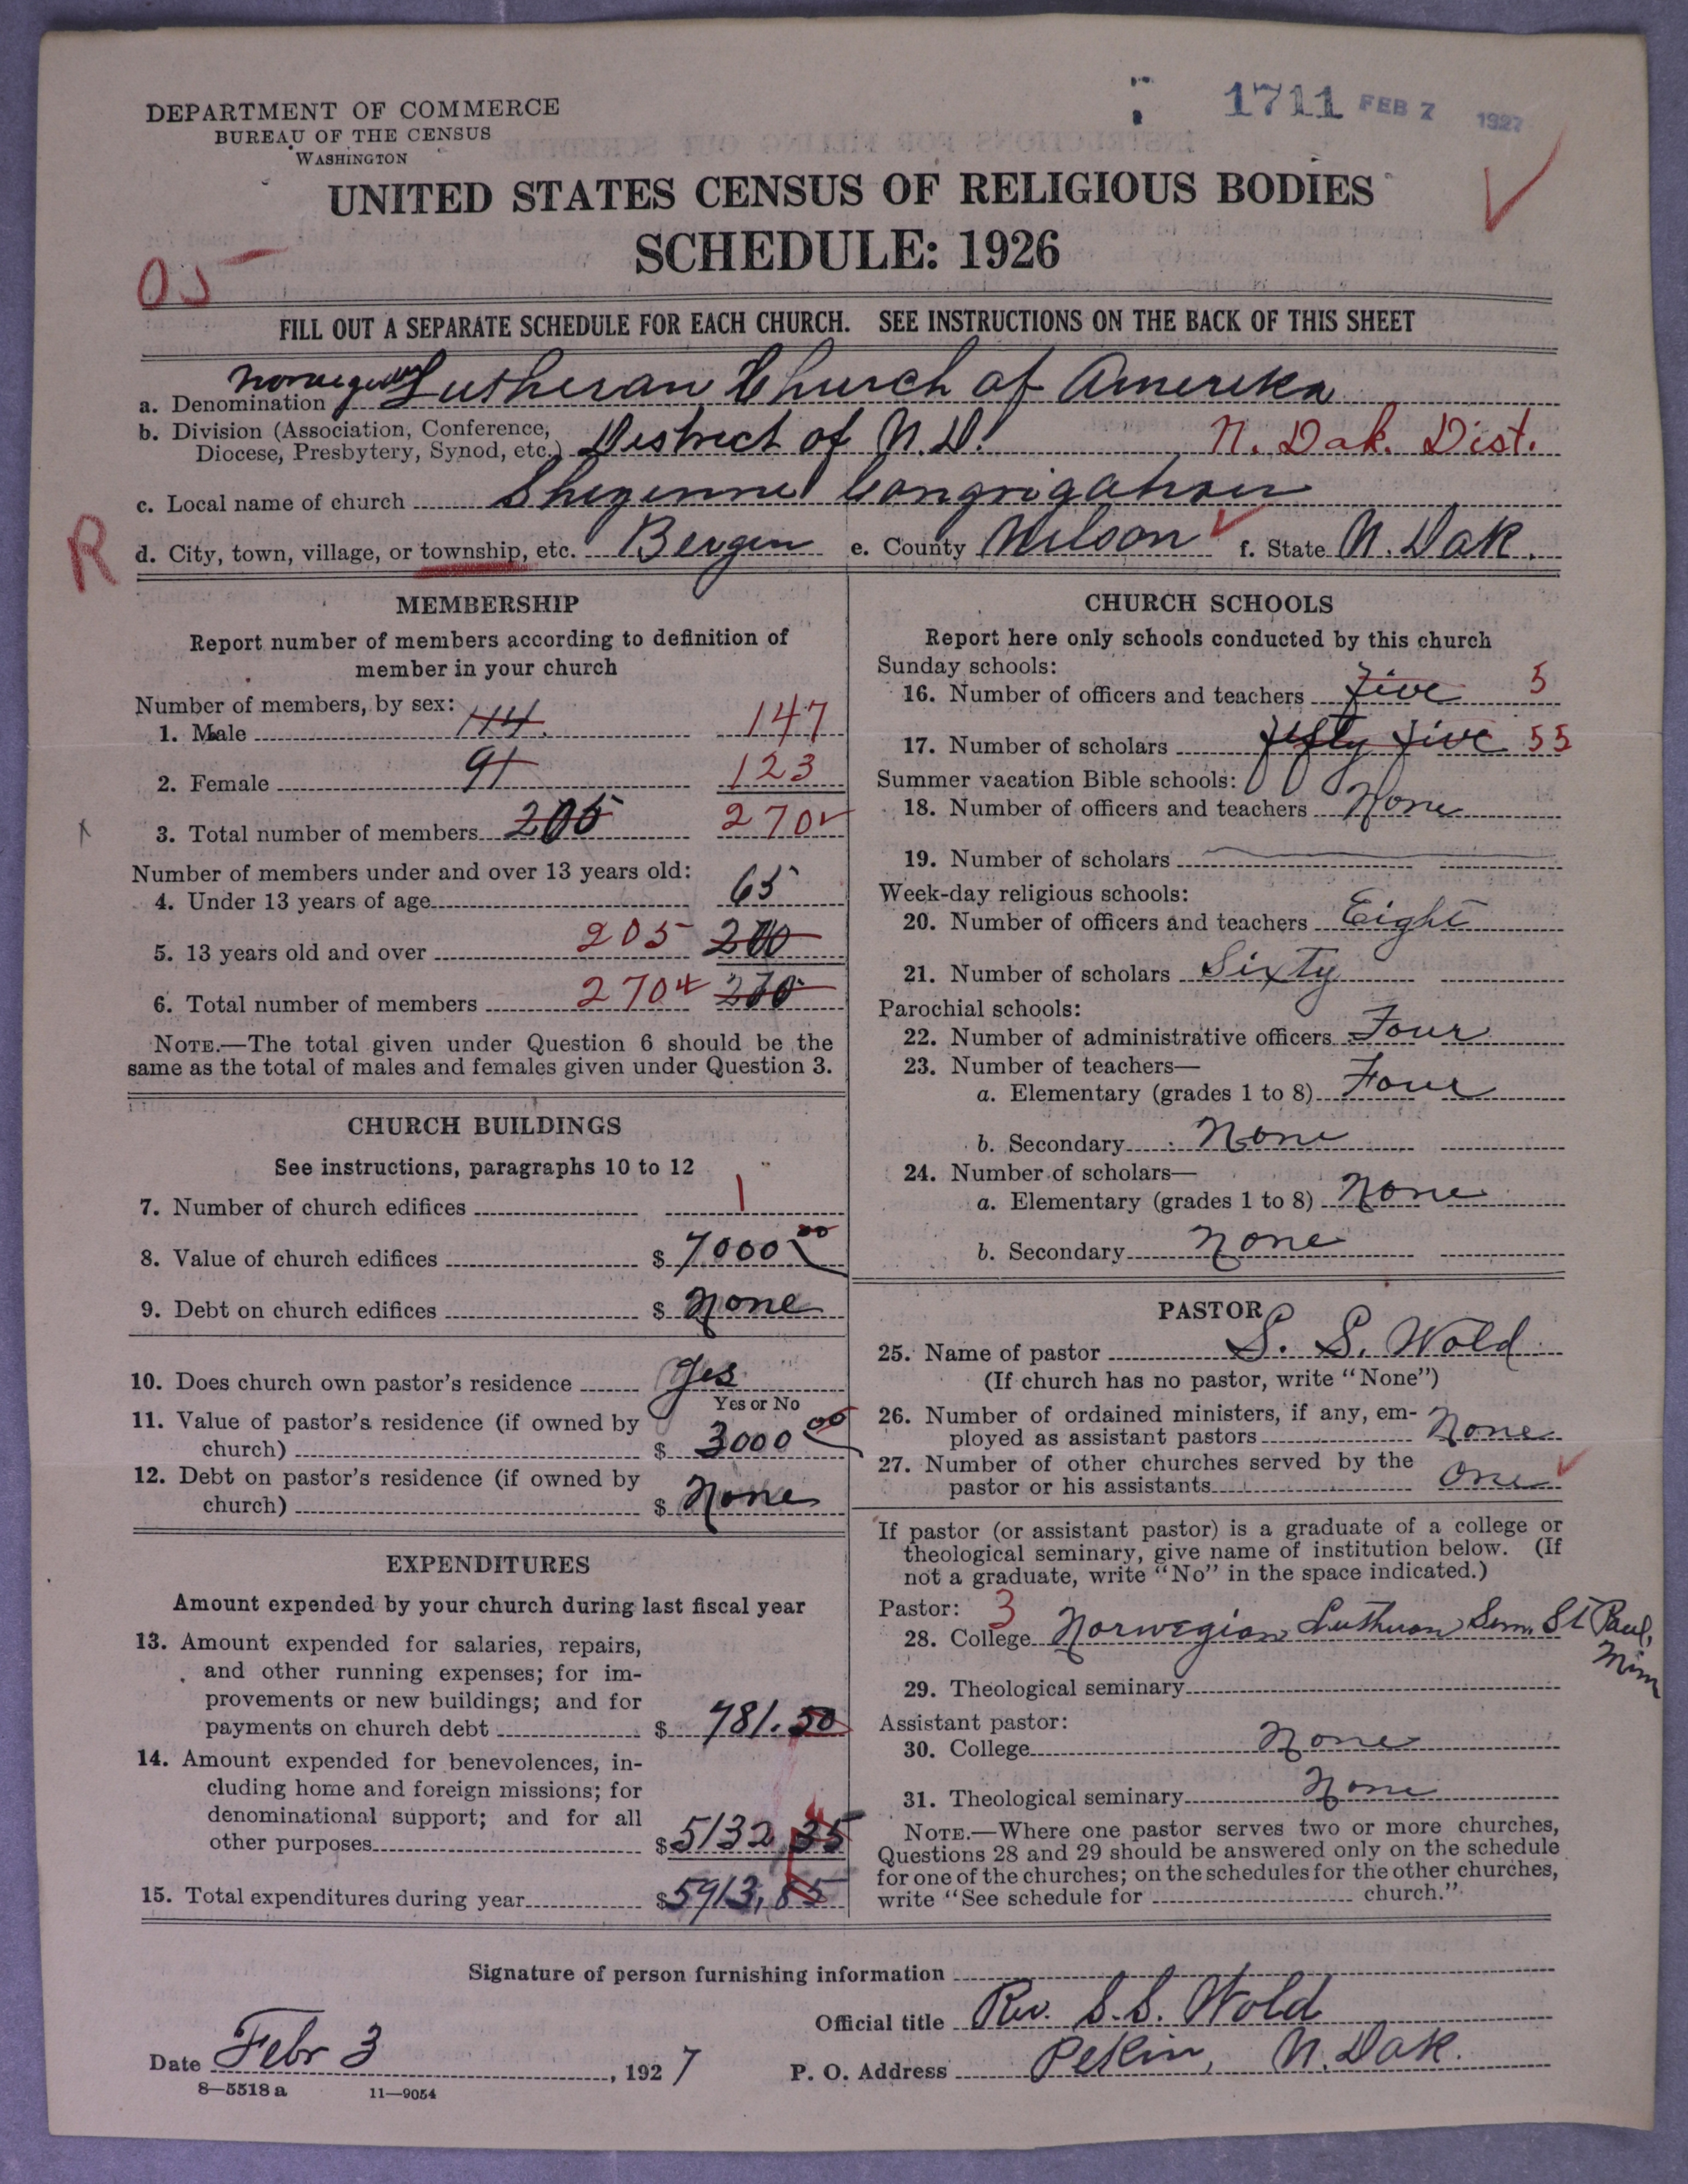 1711 FEB 7 1927
DEPARTMENT OF COMMERCE
BUREAU OF THE CENSUS
WASHINGTON
UNITED STATES CENSUS OF RELIGIOUS BODIES
SCHEDULE: 1926
05
FILL OUT A SEPARATE SCHEDULE FOR EACH CHURCH. SEE INSTRUCTIONS ON THE BACK OF THIS SHEET
a. Denomination Norwegian Lutheran Church of Amerika
b. Division (Association, Conference,
Diocese, Presbytery, Synod, etc.) District of N.D. N. Dak. Dist.
c. Local name of church Sheyenne Congrigation
R
d. City, town, village, or township, etc. Bergen e. County Nelson f. State N. Dak.
MEMBERSHIP
Report number of members according to definition of
member in your church
Number of members, by sex:
1. Male 114. 147
2. Female 91 123
3. Total number of members 205 270
Number of members under and over 13 years old:
4. Under 13 years of age 65
5. 13 years old and over 205 200
6. Total number of members 270
NOTE.—The total given under Question 6 should be the
same as the total of males and females given under Question 3.
CHURCH BUILDINGS
See instructions, paragraphs 10 to 12
7. Number of church edifices 1
8. Value of church edifices $ 7000 00
9. Debt on church edifices $ None
10. Does church own pastor's residence Yes
Yes or No
11. Value of pastor's residence (if owned by
church) $ 3000 00
12. Debt on pastor's residence (if owned by
church) $ None
EXPENDITURES
Amount expended by your church during last fiscal year
13. Amount expended for salaries, repairs,
and other running expenses; for im-
provements or new buildings; and for
payments on church debt $ 781.50
14. Amount expended for benevolences, in-
cluding home and foreign missions; for
denominational support; and for all
other purposes $ 5132,35
15. Total expenditures during year $ 5913,85
CHURCH SCHOOLS
Report here only schools conducted by this church
Sunday schools:
16. Number of officers and teachers five 5
17. Number of scholars fifty five 55
Summer vacation Bible schools:
18. Number of officers and teachers None
19. Number of scholars
Week-day religious schools:
20. Number of officers and teachers Eight
21. Number of scholars Sixty
Parochial schools:
22. Number of administrative officers Four
23. Number of teachers—
a. Elementary (grades 1 to 8) Four
b. Secondary None
24. Number of scholars—
a. Elementary (grades 1 to 8) None
b. Secondary None
PASTOR
25. Name of pastor S. S. Wold
(If church has no pastor, write "None")
26. Number of ordained ministers, if any, em-
ployed as assistant pastors None
27. Number of other churches served by the
pastor or his assistants One
If pastor (or assistant pastor) is a graduate of a college or
theological seminary, give name of institution below. (If
not a graduate, write "No" in the space indicated.)
Pastor: 3
28. College Norwegian Lutheran Sem. St Paul,
Minn
29. Theological seminary
Assistant pastor:
30. College None
31. Theological seminary None
NOTE.—Where one pastor serves two or more churches,
Questions 28 and 29 should be answered only on the schedule
for one of the churches; on the schedules for the other churches,
write "See schedule for church."
Signature of person furnishing information
Official title Rev. S.S. Wold
Date Febr 3, 1927 P. O. Address Pekin, N. Dak.
8—5518 a 11—9054